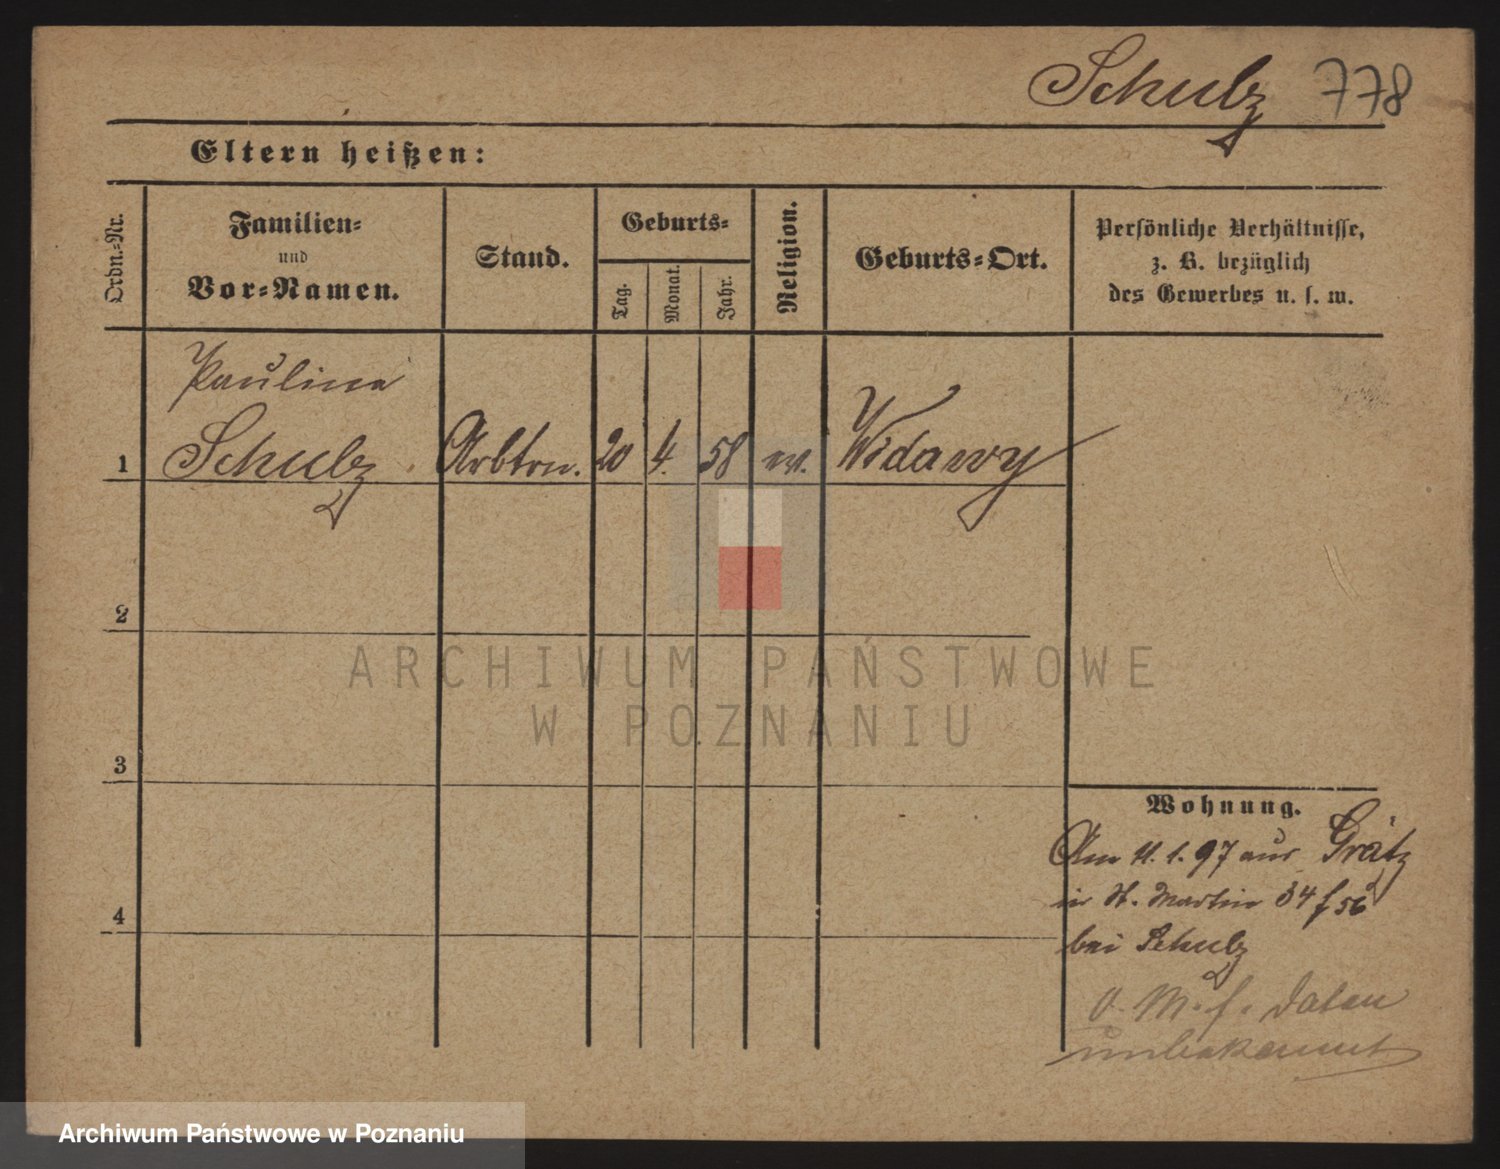 Schulz 778
Eltern heißen:
Ordn.-Nr.
Familien-
und
Vor-Namen.
Stand.
Geburts-
Tag.
Monat.
Jahr.
Religion.
Geburts-Ort.
Persönliche Verhältnisse,
z. B. bezüglich
des Gewerbes u. s. w.
Paulina
1 Schulz Arbtrn. 20 4. 58 ev. Widawy
2
ARCHIWUM PAŃSTWOWE
W POZNANIU
3
4
Wohnung.
Am 11.1.97 aus Grätz
in St. Martin 34 f 56
bei Schulz
Daten
unbekannt
Archiwum Państwowe w Poznaniu